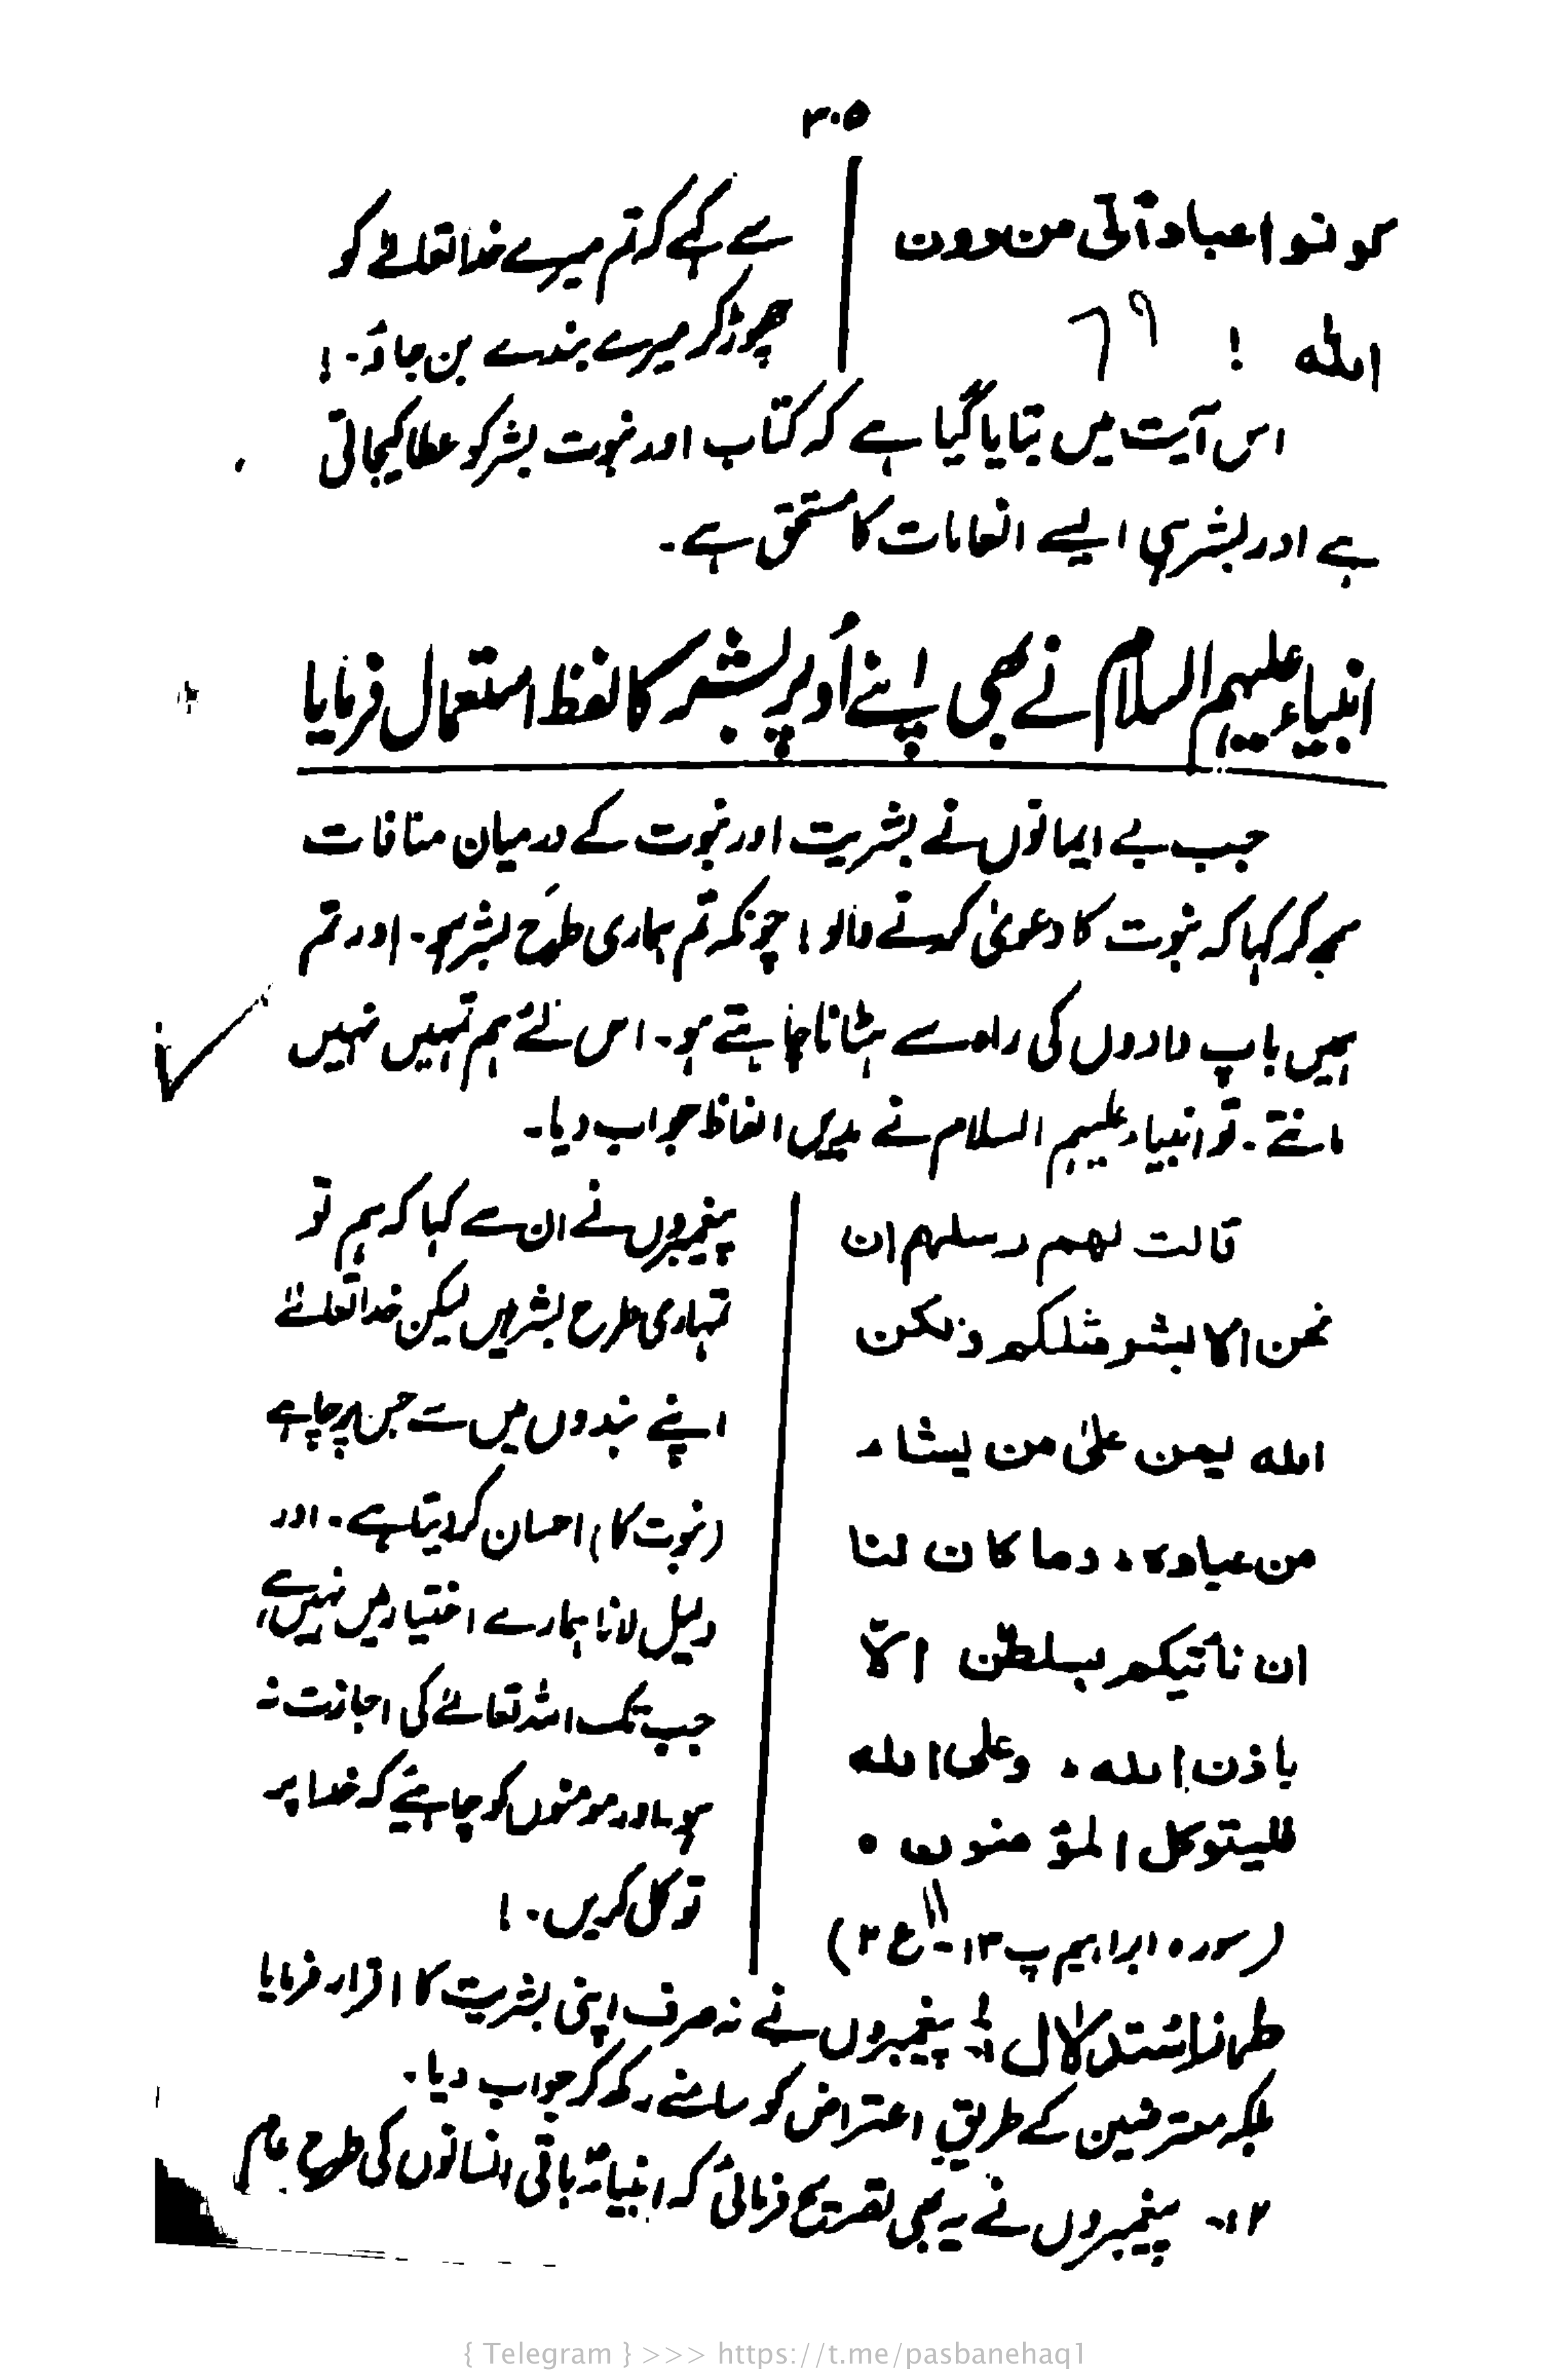 ۳۰۵
کونوا عبادًالی من دون
اللہ !
۷۹
سے کہے کہ تم میرے خدا تعالےٰ کو
چھوڑ کر میرے بندے بن جاؤ۔!
اس آیت میں بتایا گیا ہے کہ کتاب اور نبوت بشر کو عطا کیجاتی
ہے اور بشر ہی ایسے انعامات کا مستحق ہے۔
انبیاء علیہم السلام نے بھی اپنے اُوپر بشر کا لفظ استعمال فرمایا
جب بے ایمانوں نے بشریت اور نبوت کے درمیان منافات
سمجھ کر کہا کہ نبوت کا دعویٰ کرنے والو! چونکہ تم ہماری طرح بشر ہو۔ اور تم
ہمیں باپ دادوں کی راہ سے ہٹانا چاہتے ہو۔ اس لئے ہم تمہیں نہیں
مانتے۔ تو انبیاء علیہم السلام نے بدیں الفاظ جواب دیا۔
قالت لھم رسلھم ان
نحن الا بشر مثلکم ولکن
اللہ یمن علیٰ من یشاء
من عبادہ، وما کان لنا
ان نأتیکم بسلطٰن الّا
باذن اللہ، وعلی اللہ
فلیتوکل المؤمنون ۰
(سورہ ابراہیم پ ۱۳۔ ع ۲)
پیغمبروں نے ان سے کہا کہ ہم تو
تمہاری طرح بشر ہیں لیکن خدا تعالےٰ
اپنے بندوں میں سے جس پر چاہے
(نبوت کا) احسان کر دیتا ہے۔ اور
دلیل لانا ہمارے اختیار میں نہیں ہے،
جب تک اللہ تعالےٰ کی اجازت نہ
ہو۔ اور مومنوں کو چاہئے کہ خدا پر
توکل کریں۔!
طرزِ استدلال ۱۔ پیغمبروں نے نہ صرف اپنی بشریت کا اقرار فرمایا
بلکہ معترضین کے طریقِ اعتراض کو سامنے رکھ کر جواب دیا۔
۲۔ پیغمبروں نے یہ بھی تصریح فرمائی کہ انبیاء باقی انسانوں کی طرح عام
{ Telegram } >>> https://t.me/pasbanehaq1